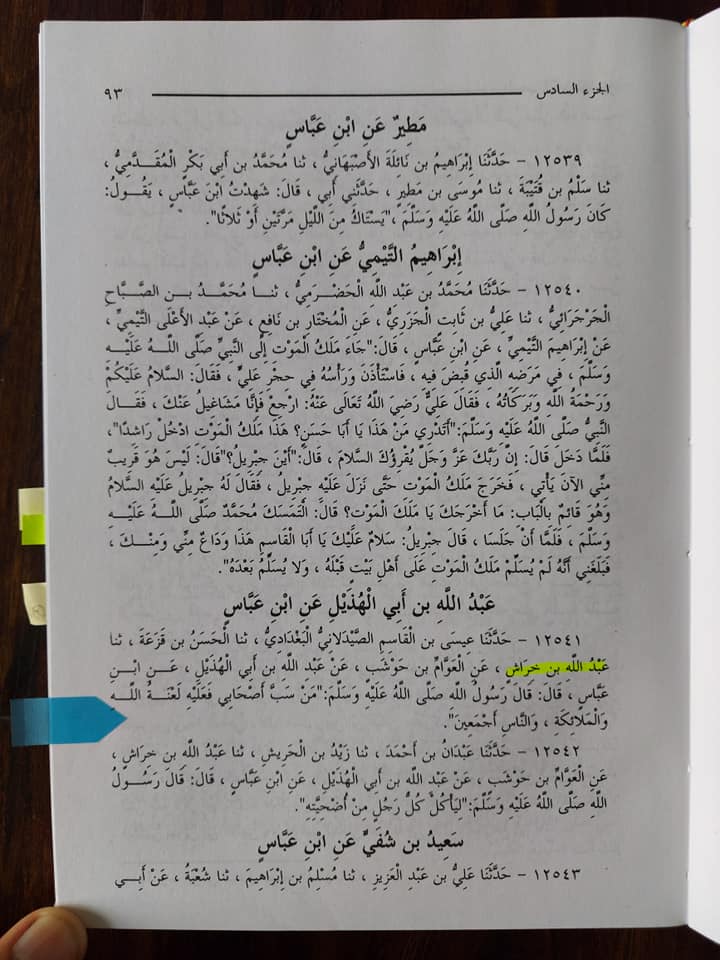 الجزء السادس ٩٣
مَطِيرٌ عَنِ ابْنِ عَبَّاسٍ
١٢٥٣٩ - حَدَّثَنَا إِبْرَاهِيمُ بن نَائِلَةَ الأَصْبَهَانِيُّ ، ثنا مُحَمَّدُ بن أَبِي بَكْرٍ الْمُقَدَّمِيُّ ،
ثنا سَلْمُ بن قُتَيْبَةَ ، ثنا مُوسَى بن مَطِيرٍ ، حَدَّثَنِي أَبِي ، قَالَ: شَهِدْتُ ابْنَ عَبَّاسٍ ، يَقُولُ:
كَانَ رَسُولُ اللهِ صَلَّى اللَّهُ عَلَيْهِ وَسَلَّمَ ،"يَسْتَاكُ مِنَ اللَّيْلِ مَرَّتَيْنِ أَوْ ثَلاثًا".
إِبْرَاهِيمُ التَّيْمِيُّ عَنِ ابْنِ عَبَّاسٍ
١٢٥٤٠ - حَدَّثَنَا مُحَمَّدُ بن عَبْدِ اللهِ الْحَضْرَمِيُّ ، ثنا مُحَمَّدُ بن الصَّبَّاحِ
الْجَرْجَرَائِيُّ ، ثنا عَلِيُّ بن ثَابِتٍ الْجَزَرِيُّ ، عَنِ الْمُخْتَارِ بن نَافِعٍ ، عَنْ عَبْدِ الأَعْلَى التَّيْمِيِّ ،
عَنْ إِبْرَاهِيمَ التَّيْمِيِّ ، عَنِ ابْنِ عَبَّاسٍ ، قَالَ:"جَاءَ مَلَكُ الْمَوْتِ إِلَى النَّبِيِّ صَلَّى اللهُ عَلَيْهِ
وَسَلَّمَ ، فِي مَرَضِهِ الَّذِي قُبِضَ فِيهِ ، فَاسْتَأْذَنَ وَرَأْسُهُ فِي حِجْرِ عَلِيٍّ ، فَقَالَ: السَّلامُ عَلَيْكُمْ
وَرَحْمَةُ اللَّهِ وَبَرَكَاتُهُ ، فَقَالَ عَلِيٌّ رَضِيَ اللَّهُ تَعَالَى عَنْهُ: ارْجِعْ فَإِنَّا مَشَاغِيلُ عَنْكَ ، فَقَالَ
النَّبِيُّ صَلَّى اللَّهُ عَلَيْهِ وَسَلَّمَ:"أَتَدْرِي مَنْ هَذَا يَا أَبَا حَسَنٍ؟ هَذَا مَلَكُ الْمَوْتِ ادْخُلْ رَاشِدًا"،
فَلَمَّا دَخَلَ قَالَ: إِنَّ رَبَّكَ عَزَّ وَجَلَّ يُقْرِؤُكَ السَّلامَ ، قَالَ:"أَيْنَ جِبْرِيلُ؟"قَالَ: لَيْسَ هُوَ قَرِيبٌ
مِنِّي الآنَ يَأْتِي ، فَخَرَجَ مَلَكُ الْمَوْتِ حَتَّى نَزَلَ عَلَيْهِ جِبْرِيلُ ، فَقَالَ لَهُ جِبْرِيلُ عَلَيْهِ السَّلامُ
وَهُوَ قَائِمٌ بِالْبَابِ: مَا أَخْرَجَكَ يَا مَلَكَ الْمَوْتِ؟ قَالَ: الْتَمَسَكَ مُحَمَّدٌ صَلَّى اللهُ عَلَيْهِ
وَسَلَّمَ ، فَلَمَّا أَنْ جَلَسَا ، قَالَ جِبْرِيلُ: سَلامٌ عَلَيْكَ يَا أَبَا الْقَاسِمِ هَذَا وَدَاعٌ مِنِّي وَمِنْكَ ،
فَبَلَغَنِي أَنَّهُ لَمْ يُسَلِّمْ مَلَكُ الْمَوْتِ عَلَى أَهْلِ بَيْتٍ قَبْلَهُ ، وَلا يُسَلِّمُ بَعْدَهُ".
عَبْدُ اللَّهِ بن أَبِي الْهُذَيْلِ عَنِ ابْنِ عَبَّاسٍ
١٢٥٤١ - حَدَّثَنَا عِيسَى بن الْقَاسِمِ الصَّيْدَلانِيُّ الْبَغْدَادِيُّ ، ثنا الْحَسَنُ بن قَزَعَةَ ، ثنا
عَبْدُ اللَّهِ بن خِرَاشٍ ، عَنِ الْعَوَّامِ بن حَوْشَبٍ ، عَنْ عَبْدِ اللَّهِ بن أَبِي الْهُذَيْلِ ، عَنِ ابْنِ
عَبَّاسٍ ، قَالَ: قَالَ رَسُولُ اللهِ صَلَّى اللَّهُ عَلَيْهِ وَسَلَّمَ:"مَنْ سَبَّ أَصْحَابِي فَعَلَيْهِ لَعْنَةُ اللَّهِ
وَالْمَلائِكَةِ ، وَالنَّاسِ أَجْمَعِينَ".
١٢٥٤٢ - حَدَّثَنَا عَبْدَانُ بن أَحْمَدَ ، ثنا زَيْدُ بن الْحَرِيشِ ، ثنا عَبْدُ اللَّهِ بن خِرَاشٍ ،
عَنِ الْعَوَّامِ بن حَوْشَبٍ ، عَنْ عَبْدِ اللهِ بن أَبِي الْهُذَيْلِ ، عَنِ ابْنِ عَبَّاسٍ ، قَالَ: قَالَ رَسُولُ
اللهِ صَلَّى اللَّهُ عَلَيْهِ وَسَلَّمَ:"لِيَأْكُلْ كُلُّ رَجُلٍ مِنْ أُضْحِيَّتِهِ".
سَعِيدُ بن شُفَيٍّ عَنِ ابْنِ عَبَّاسٍ
١٢٥٤٣ - حَدَّثَنَا عَلِيُّ بن عَبْدِ الْعَزِيزِ ، ثنا مُسْلِمُ بن إِبْرَاهِيمَ ، ثنا شُعْبَةُ ، عَنْ أَبِي